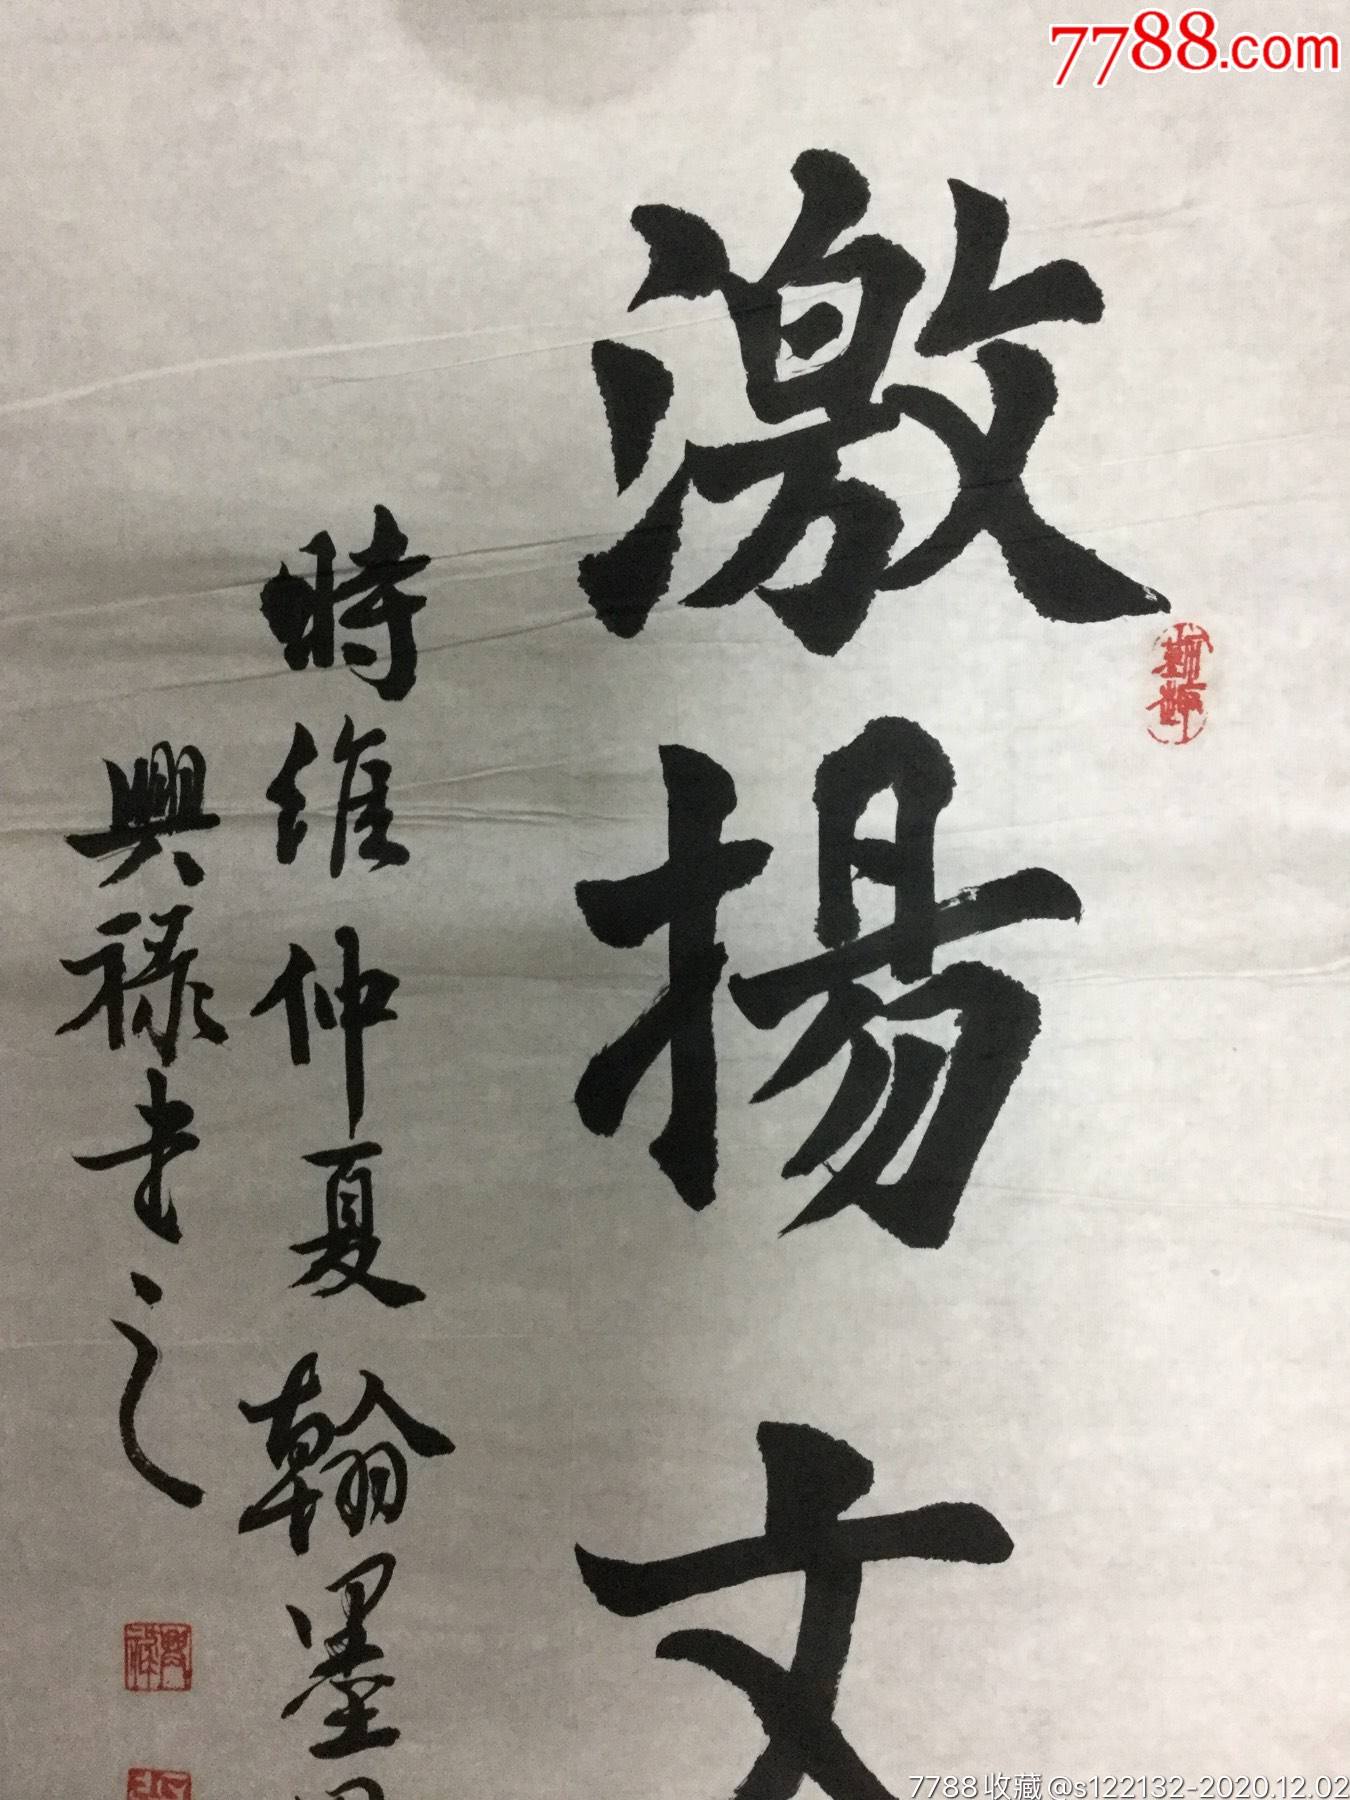 7788.com
激揚文
時維仲夏翰墨
興禄書之
興禄
7788收藏@s122132-2020.12.02